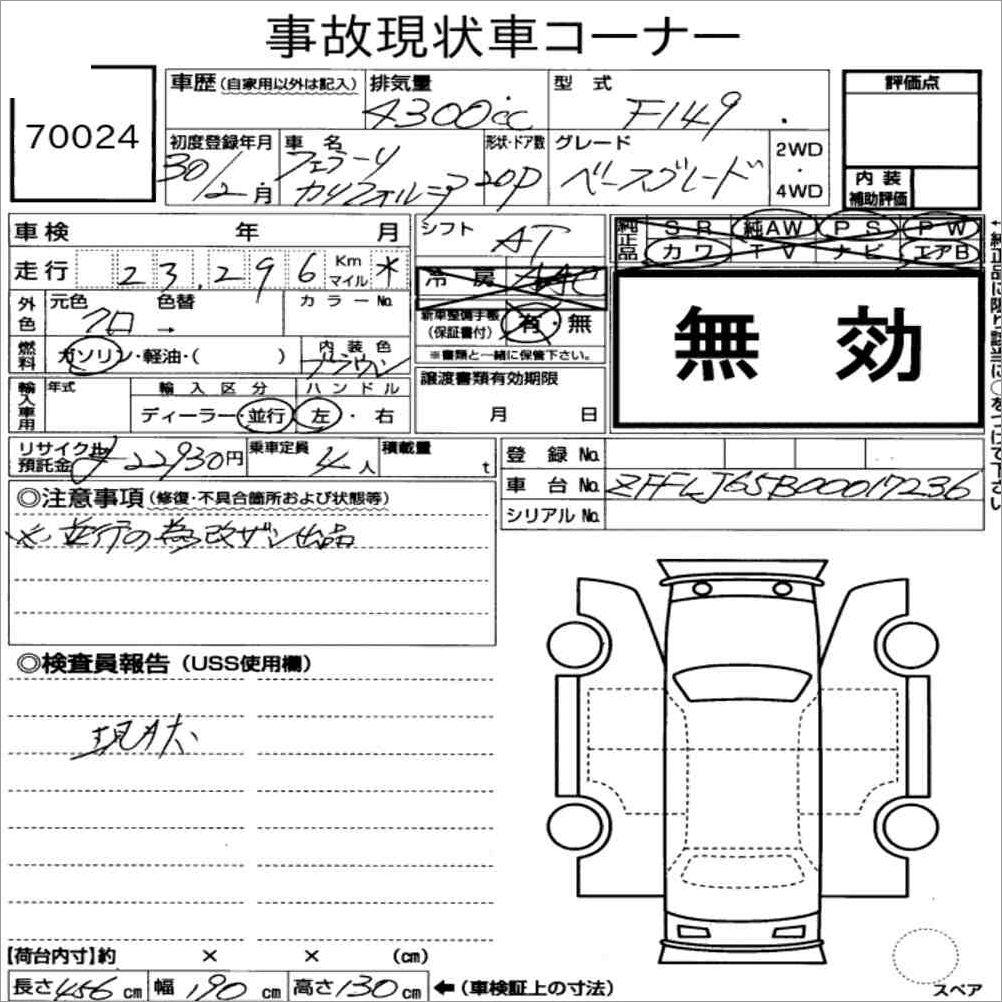 事故現状車コーナー
70024
車歴 (自家用以外は記入) 排気量 4300cc 型式 F149 .
評価点
内装補助評価
初度登録年月 30/2月 車名 フェラーリ カリフォルニア 形状・ドア数 2OP グレード ベースグレード 2WD・4WD
車検 年 月
シフト AT
純正品 SR 純AW PS PW
カワ TV ナビ エアB
走行 23,296 Km マイル *
冷房
外色 元色 クロ 色替 → カラーNo.
新車整備手帳(保証書付) 有・無
※書類と一緒に保管下さい。
燃料 ガソリン・軽油・( ) 内装色 ブラウン
無効
輸入車用 年式 輸入区分 ディーラー・並行 ハンドル 左・右
譲渡書類有効期限
月 日
リサイクル預託金 ¥22930円 乗車定員 4人 積載量 t
登録No.
車台No. ZFFLJ65B00017236
シリアルNo.
◎注意事項 (修復・不具合箇所および状態等)
※ 並行の為改ザン出品
◎検査員報告 (USS使用欄)
現状
【荷台内寸】約 × × (cm)
長さ 456 cm 幅 190 cm 高さ 130 cm ←(車検証上の寸法)
スペア